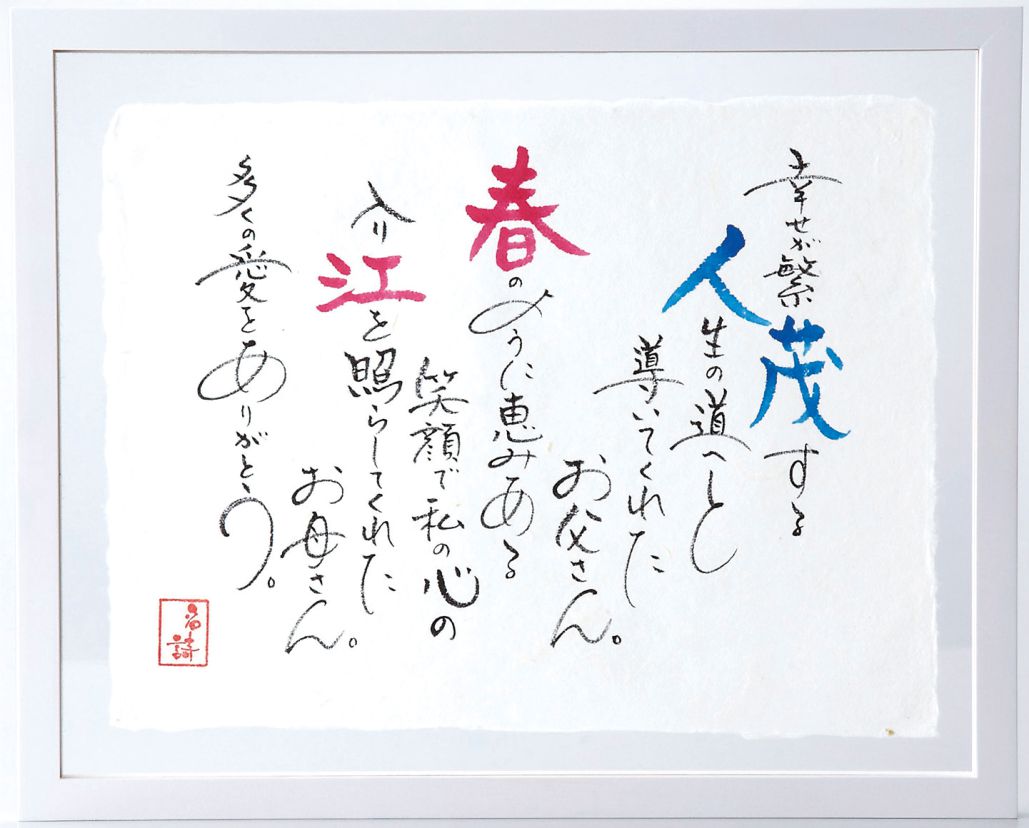 幸せが繁茂する
人生の道へと
導いてくれた
お父さん。
春のように恵みある
笑顔で私の心の
入り江を照らしてくれた
お母さん。
多くの愛をありがとう。
名詩